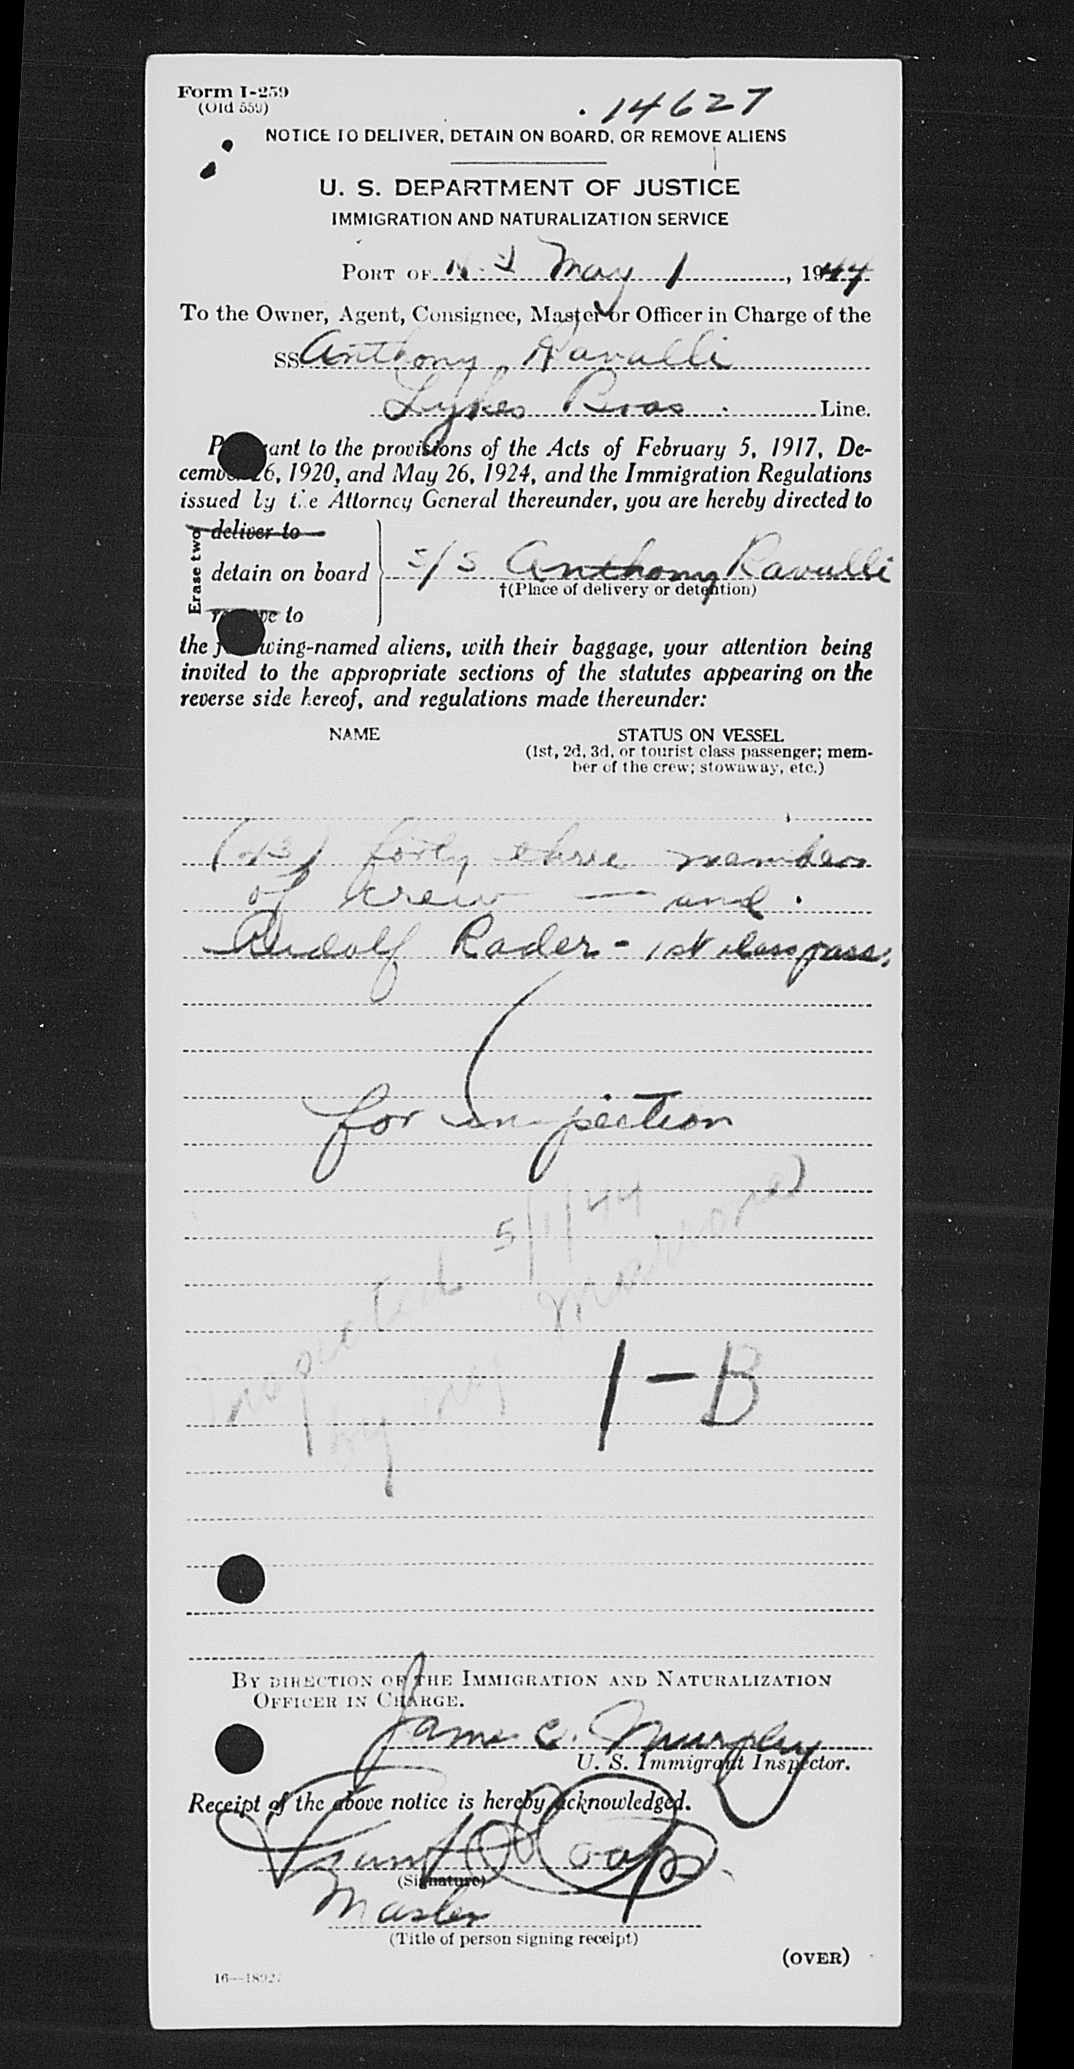 Form I-259
(Old 559)
14627
NOTICE TO DELIVER, DETAIN ON BOARD, OR REMOVE ALIENS
U. S. DEPARTMENT OF JUSTICE
IMMIGRATION AND NATURALIZATION SERVICE
PORT OF N. Y. May 1, 1944
To the Owner, Agent, Consignee, Master or Officer in Charge of the
SS Anthony Ravalli
Lykes Bros. Line.
Pursuant to the provisions of the Acts of February 5, 1917, De-
cember 26, 1920, and May 26, 1924, and the Immigration Regulations
issued by the Attorney General thereunder, you are hereby directed to
Erase two
deliver to
detain on board } S/S Anthony Ravalli
†(Place of delivery or detention)
remove to
the following-named aliens, with their baggage, your attention being
invited to the appropriate sections of the statutes appearing on the
reverse side hereof, and regulations made thereunder:
NAME STATUS ON VESSEL
(1st, 2d, 3d, or tourist class passenger; mem-
ber of the crew; stowaway, etc.)
(43) forty three members
of crew — and
Rudolf Rader - 1st class pass.
for inspection
Inspected 5/1/44
by
1-B
BY DIRECTION OF THE IMMIGRATION AND NATURALIZATION
OFFICER IN CHARGE.
James C. Murphy
U. S. Immigrant Inspector.
Receipt of the above notice is hereby acknowledged.
(Signature)
Master
(Title of person signing receipt)
(OVER)
16—18927